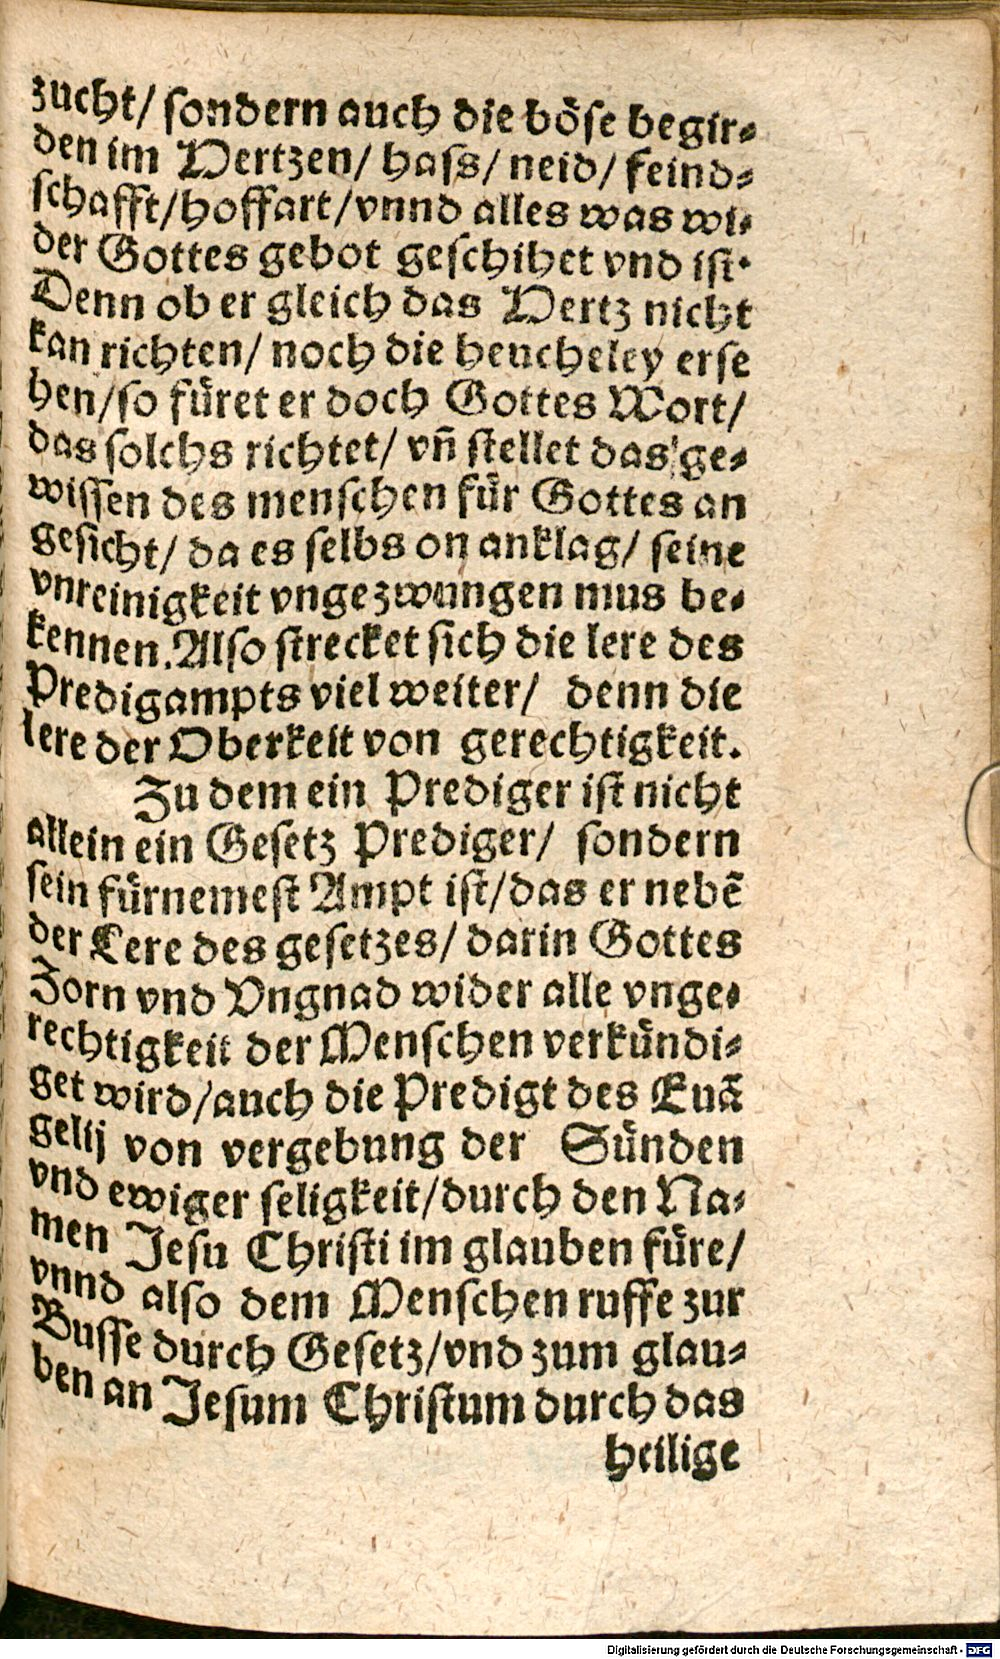 zucht/ sondern auch die böse begir-
den im Hertzen/ hass/ neid/ feind-
schafft/hoffart/vnnd alles was wi-
der Gottes gebot geschihet vnd ist.
Denn ob er gleich das Hertz nicht
kan richten/ noch die heucheley erse
hen/so füret er doch Gottes Wort/
das solchs richtet/ vñ stellet das ge-
wissen des menschen für Gottes an
gesicht/ da es selbs on anklag/ seine
vnreinigkeit vngezwungen mus be-
kennen. Also strecket sich die lere des
Predigampts viel weiter/ denn die
lere der Oberkeit von gerechtigkeit.
Zu dem ein Prediger ist nicht
allein ein Gesetz Prediger/ sondern
sein fürnemest Ampt ist/das er nebē
der Lere des gesetzes/ darin Gottes
Zorn vnd Vngnad wider alle vnge-
rechtigkeit der Menschen verkündi-
get wird/auch die Predigt des Euā
gelij von vergebung der Sünden
vnd ewiger seligkeit/durch den Na-
men Jesu Christi im glauben füre/
vnnd also dem Menschen ruffe zur
Busse durch Gesetz/vnd zum glau-
ben an Jesum Christum durch das
heilige
Digitalisierung gefördert durch die Deutsche Forschungsgemeinschaft - DFG